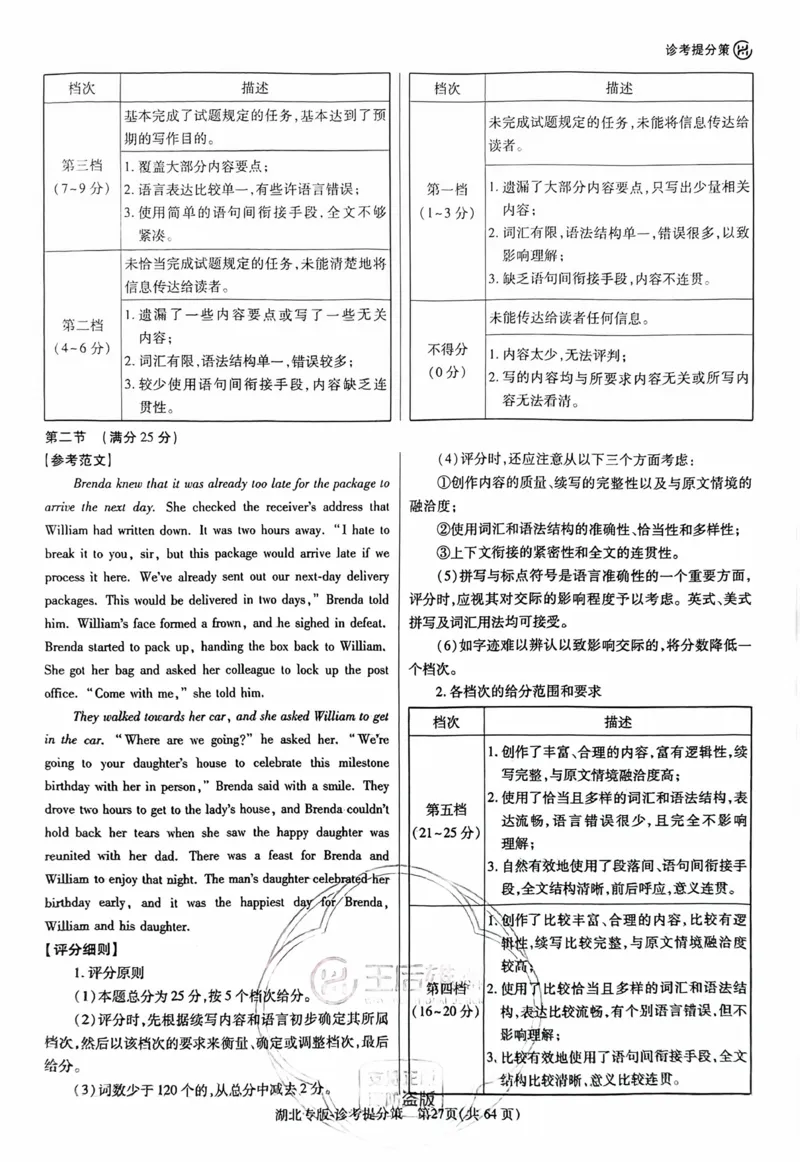 诊考提分策
档次 描述
第三档
(7~9 分)
基本完成了试题规定的任务,基本达到了预
期的写作目的。
1. 覆盖大部分内容要点;
2. 语言表达比较单一,有些许语言错误;
3. 使用简单的语句间衔接手段,全文不够
紧凑。
第二档
(4~6 分)
未恰当完成试题规定的任务,未能清楚地将
信息传达给读者。
1. 遗漏了一些内容要点或写了一些无关
内容;
2. 词汇有限,语法结构单一,错误较多;
3. 较少使用语句间衔接手段,内容缺乏连
贯性。
档次 描述
第一档
(1~3 分)
未完成试题规定的任务,未能将信息传达给
读者。
1. 遗漏了大部分内容要点,只写出少量相关
内容;
2. 词汇有限,语法结构单一,错误很多,以致
影响理解;
3. 缺乏语句间衔接手段,内容不连贯。
不得分
(0 分)
未能传达给读者任何信息。
1. 内容太少,无法评判;
2. 写的内容均与所要求内容无关或所写内
容无法看清。
第二节 (满分 25 分)
【参考范文】
Brenda knew that it was already too late for the package to
arrive the next day. She checked the receiver's address that
William had written down. It was two hours away. "I hate to
break it to you, sir, but this package would arrive late if we
process it here. We've already sent out our next-day delivery
packages. This would be delivered in two days," Brenda told
him. William's face formed a frown, and he sighed in defeat.
Brenda started to pack up, handing the box back to William.
She got her bag and asked her colleague to lock up the post
office. "Come with me," she told him.
They walked towards her car, and she asked William to get
in the car. "Where are we going?" he asked her. "We're
going to your daughter's house to celebrate this milestone
birthday with her in person," Brenda said with a smile. They
drove two hours to get to the lady's house, and Brenda couldn't
hold back her tears when she saw the happy daughter was
reunited with her dad. There was a feast for Brenda and
William to enjoy that night. The man's daughter celebrated her
birthday early, and it was the happiest day for Brenda,
William and his daughter.
【评分细则】
1. 评分原则
(1)本题总分为 25 分,按 5 个档次给分。
(2)评分时,先根据续写内容和语言初步确定其所属
档次,然后以该档次的要求来衡量、确定或调整档次,最后
给分。
(3)词数少于 120 个的,从总分中减去 2 分。
(4)评分时,还应注意从以下三个方面考虑:
①创作内容的质量、续写的完整性以及与原文情境的
融洽度;
②使用词汇和语法结构的准确性、恰当性和多样性;
③上下文衔接的紧密性和全文的连贯性。
(5)拼写与标点符号是语言准确性的一个重要方面,
评分时,应视其对交际的影响程度予以考虑。英式、美式
拼写及词汇用法均可接受。
(6)如字迹难以辨认以致影响交际的,将分数降低一
个档次。
2. 各档次的给分范围和要求
档次 描述
第五档
(21~25 分)
1. 创作了丰富、合理的内容,富有逻辑性,续
写完整,与原文情境融洽度高;
2. 使用了恰当且多样的词汇和语法结构,表
达流畅,语言错误很少,且完全不影响
理解;
3. 自然有效地使用了段落间、语句间衔接手
段,全文结构清晰,前后呼应,意义连贯。
第四档
(16~20 分)
1. 创作了比较丰富、合理的内容,比较有逻
辑性,续写比较完整,与原文情境融洽度
较高;
2. 使用了比较恰当且多样的词汇和语法结
构,表达比较流畅,有个别语言错误,但不
影响理解;
3. 比较有效地使用了语句间衔接手段,全文
结构比较清晰,意义比较连贯。
王后雄
盗版
湖北专版·诊考提分策 第27页(共 64 页)